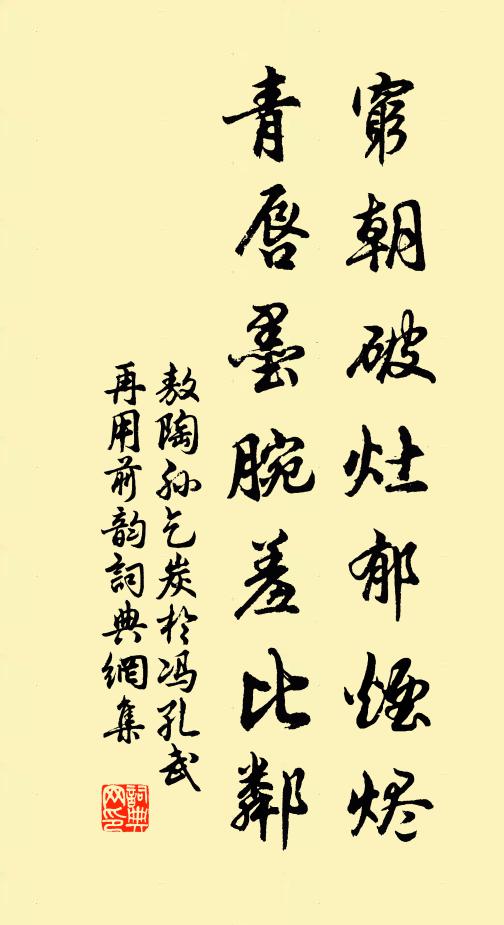 窮朝破灶郁煙燼
青唇墨腕羞比鄰
敖陶孙乞炭於冯孔武
再用前韵詞典網集
詞典网印